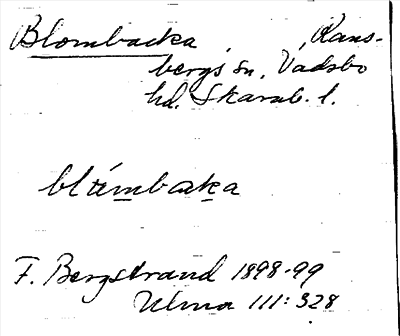 Blombacka, Rans-
bergs sn, Vadsbo
hd. Skarab. l.
F. Bergstrand 1898-99
Ulma 111:328